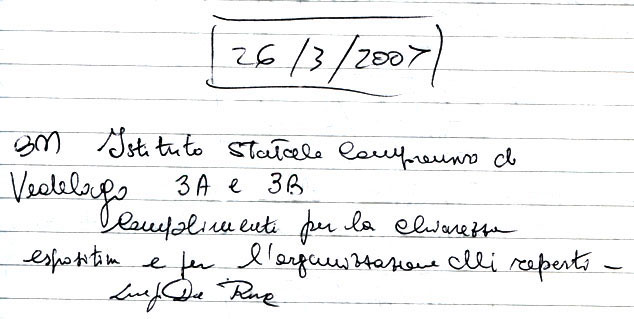 26/3/2007
Istituto Statale Comprensivo di
Vedelago 3A e 3B
Complimenti per la chiarezza
espositiva e per l'organizzazione dei reperti -
Luigi De